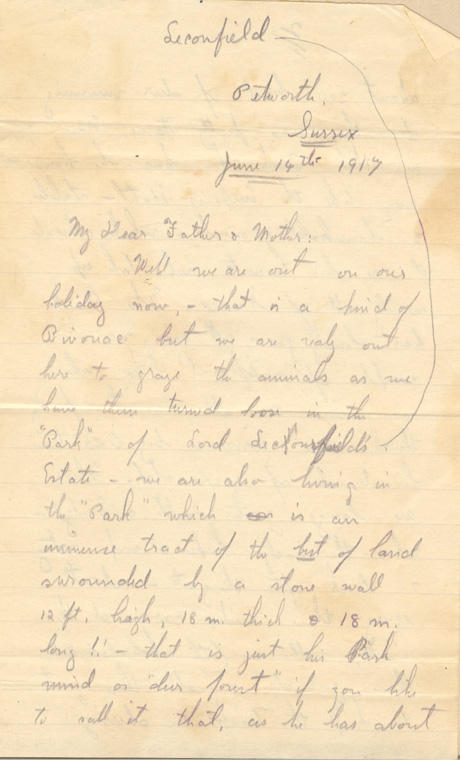 Leconfield
Petworth.
Sussex
June 14th 1917
My Dear Father & Mother:
Well we are out on our
holiday now, - that is a kind of
Bivouac but we are only out
here to graze the animals as we
have them turned loose in the
"Park" of Lord Leconfield's
Estate - we are also living in
the "Park" which is an
immense tract of the best of land
surrounded by a stone wall
12 ft. high, 18 in. thick & 18 m.
long!! - that is just his Park
mind or "deer forest" if you like
to call it that, as he has about